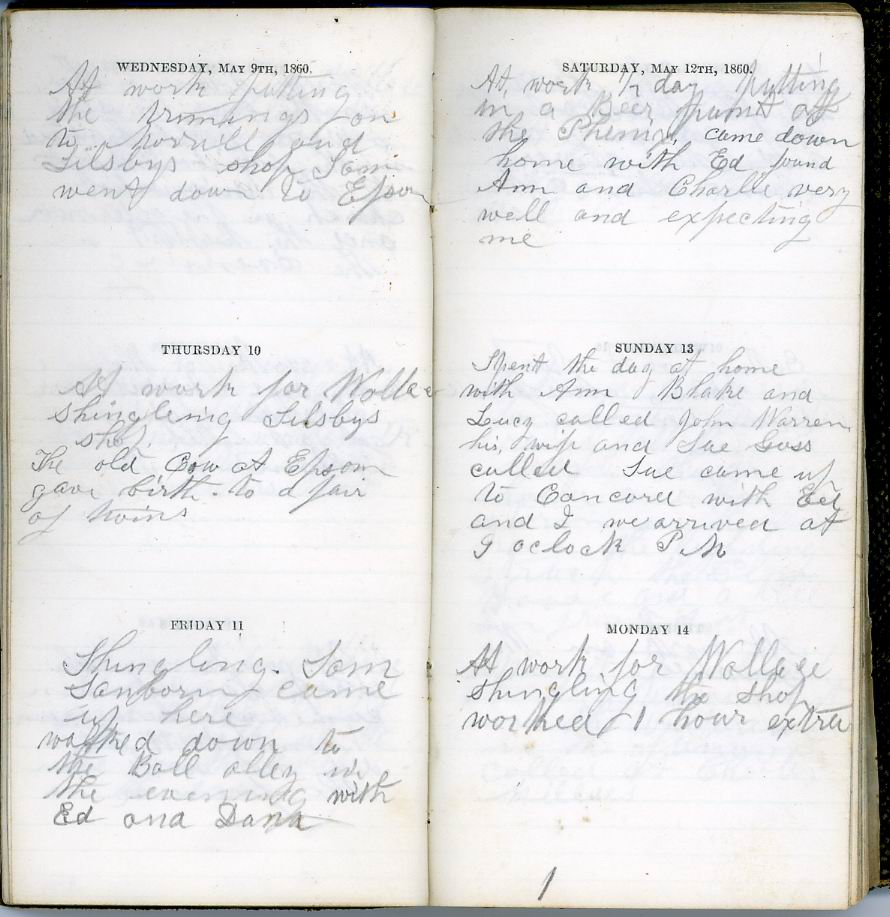 WEDNESDAY, MAY 9TH, 1860.
At work putting
the trimings on
to Morrill and
Silsbys shop Sam
went down to Epsom
THURSDAY 10
At work for Wallace
Shingleing Silsbys
shop
The old Cow at Epsom
gave birth to a pair
of twins
FRIDAY 11
Shingling. Sam
Sanborn came
up here
walked down to
the Ball alley in
the evening with
Ed and Dana
SATURDAY, MAY 12TH, 1860.
At work ½ day putting
in a Beer pump at
the Phenix, came down
home with Ed found
Ann and Charlie very
well and expecting
me
SUNDAY 13
Spent the day at home
with Ann Blake and
Lucy called John Warren
his wife and Sue Goss
called Sue came up
to Concord with Ed
and I we arrived at
9 oclock P M
MONDAY 14
At work for Wallace
shingling the shop
worked 1 hour extra